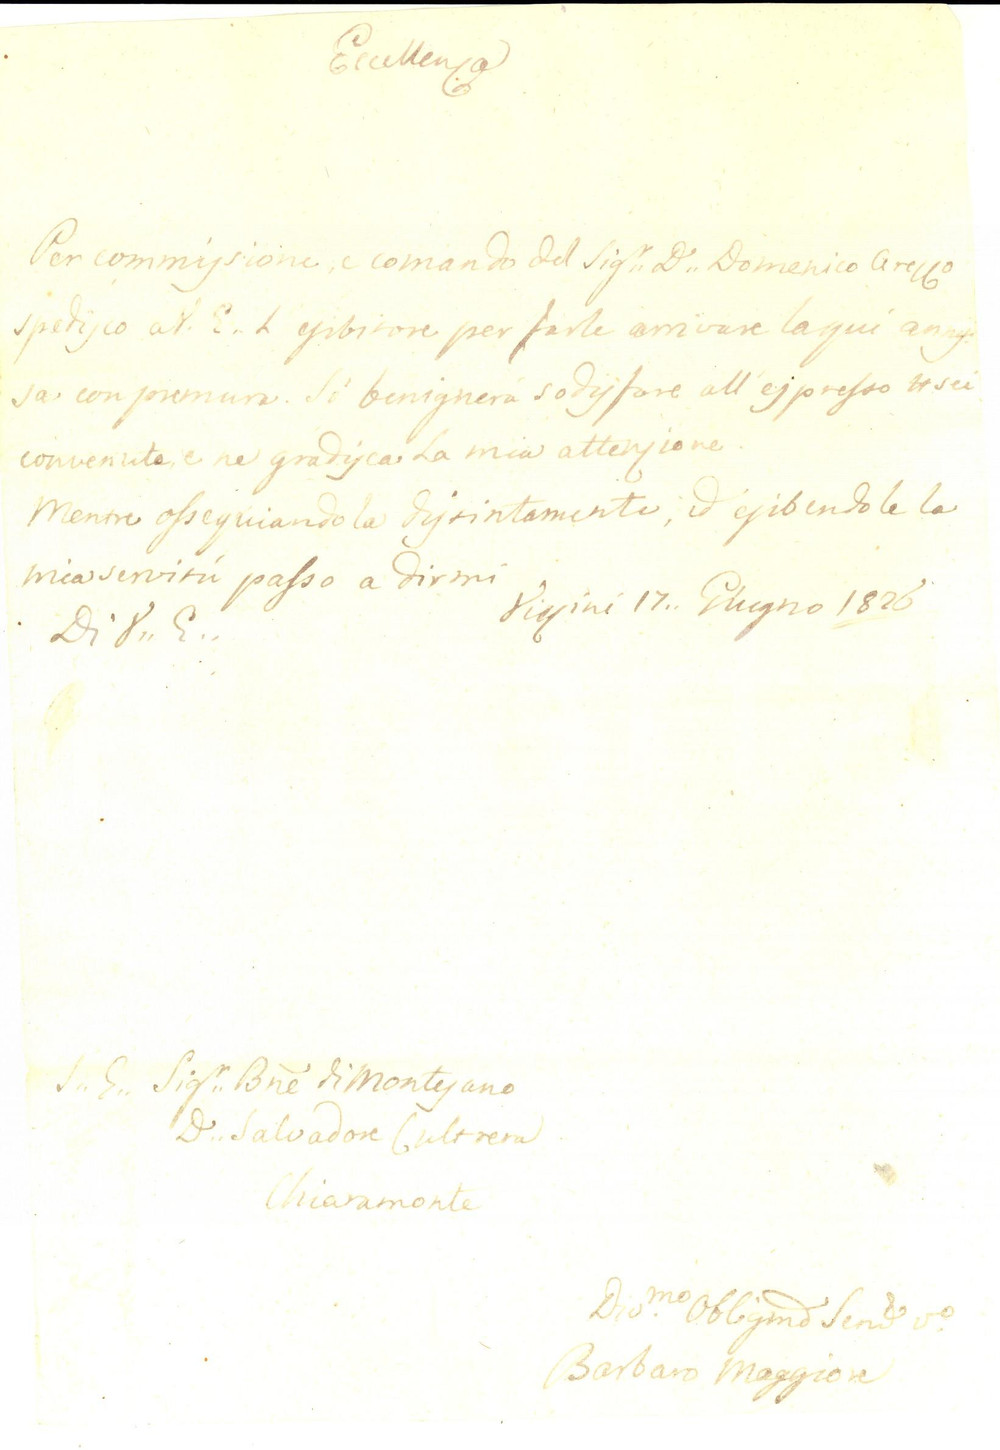 Eccellenza
Per commissione, e comando del Sig.r D.n Domenico Arezzo
spedisco a V. E. L'esibitore per farle arrivare la qui annes-
sa con premura. Si benignerà sodisfare all'espresso
convenuto, e ne gradisca La mia attenzione.
Mentre ossequiandola distintamente, ed esibendole la
mia servitù passo a dirmi
Di V.. E..
Vizzini 17.. Giugno 1826
S.. E.. Sig.r Bne di Montesano
D.n Salvadore Cultrera
Chiaramonte
Div.mo Obblgmo Serv.e v.o
Barbaro Maggiore